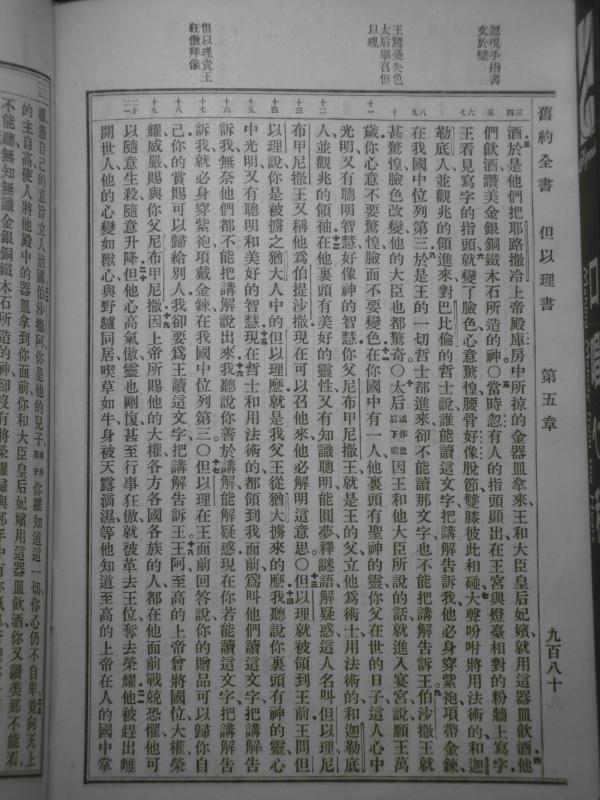 舊約全書 但以理書 第五章 九百八十
誼現手指書
女於壁
王驚憂失色
太后舉召但
以理
但以理責王
狂傲拜像
酒於是他們把耶路撒冷上帝殿庫房中所掠的金器皿拿來王和大臣皇后妃嬪就用這器皿飲酒他
們飲酒讚美金銀銅鐵木石所造的神〇當時忽有人的指頭顯出在王宮與燈臺相對的粉牆上寫字
王看見寫字的指頭就變了臉色心意驚惶腰骨好像脫節雙膝彼此相碰大聲吩咐將用法術的和迦
勒底人並觀兆的領進來對巴比倫的哲士說誰能讀這文字把講解告訴我他必身穿紫袍項帶金鍊
在我國中位列第三於是王的一切哲士都進來卻不能讀那文字也不能把講解告訴王伯沙撒王就
甚驚惶臉色改變他的大臣也都驚奇〇太后因王和他大臣所說的話就進入宴宮說願王萬
歲你心意不要驚惶臉面不要變色在你國中有一人他裏頭有聖神的靈你父在世的日子這人心中
光明又有聰明智慧好像神的智慧你父尼布甲尼撒王就是王的父立他為術士用法術的和迦勒底
人並觀兆的領袖在他裏頭有美好的靈性又有知識聰明能圓夢釋謎語解疑惑這人名叫但以理尼
布甲尼撒王又稱他為伯提沙撒現在可以召他來他必解明這意思〇但以理就被領到王前王問但
以理說你是被擄之猶大人中的但以理麼就是我父王從猶大擄來的麼我聽說你裏頭有神的靈心
中光明又有聰明和美好的智慧現在哲士和用法術的都領到我面前為叫他們讀這文字把講解告
訴我無奈他們都不能把講解說出來我聽說你善於講解能解疑惑現在你若能讀這文字把講解告
訴我就必身穿紫袍項戴金鍊在我國中位列第三〇但以理在王面前回答說你的贈品可以歸你自
己你的賞賜可以歸給別人我卻要為王讀這文字把講解告訴王王阿至高的上帝曾將國位大權榮
耀威嚴賜與你父尼布甲尼撒因上帝所賜他的大權各方各國各族的人都在他面前戰兢恐懼他可
以隨意生殺隨意升降但他心高氣傲靈也剛愎甚至行事狂傲就被革去王位奪去榮耀他被趕出離
開世人他的心變如獸心與野驢同居喫草如牛身被天露滴濕等他知道至高的上帝在人的國中掌